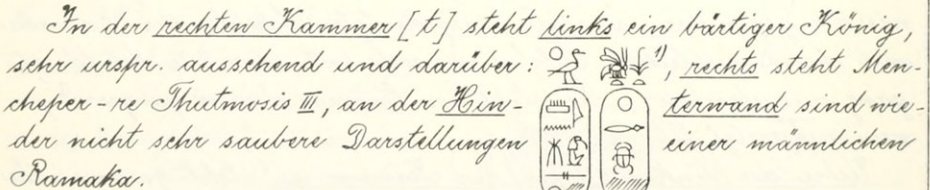 In der rechten Kammer [t] steht links ein bärtiger König,
sehr urspr. aussehend und darüber: 1), rechts steht Men-
cheper-re Thutmosis III, an der Hin- terwand sind wie-
der nicht sehr saubere Darstellungen einer männlichen
Ramaka.